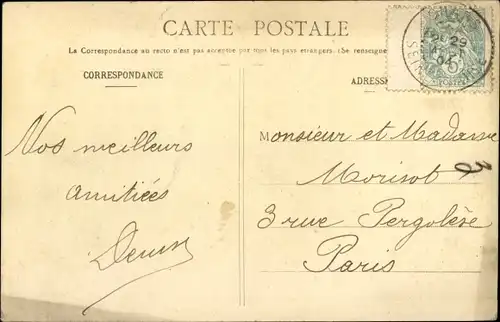 CARTE POSTALE
La Correspondance au recto n'est pas acceptée par tous les pays étrangers. (Se renseigne
CORRESPONDANCE
ADRESSE
Nos meilleurs
amitiées
Monsieur et Madame
Morisot
3 rue Pergolèse
Paris
29
SEINE